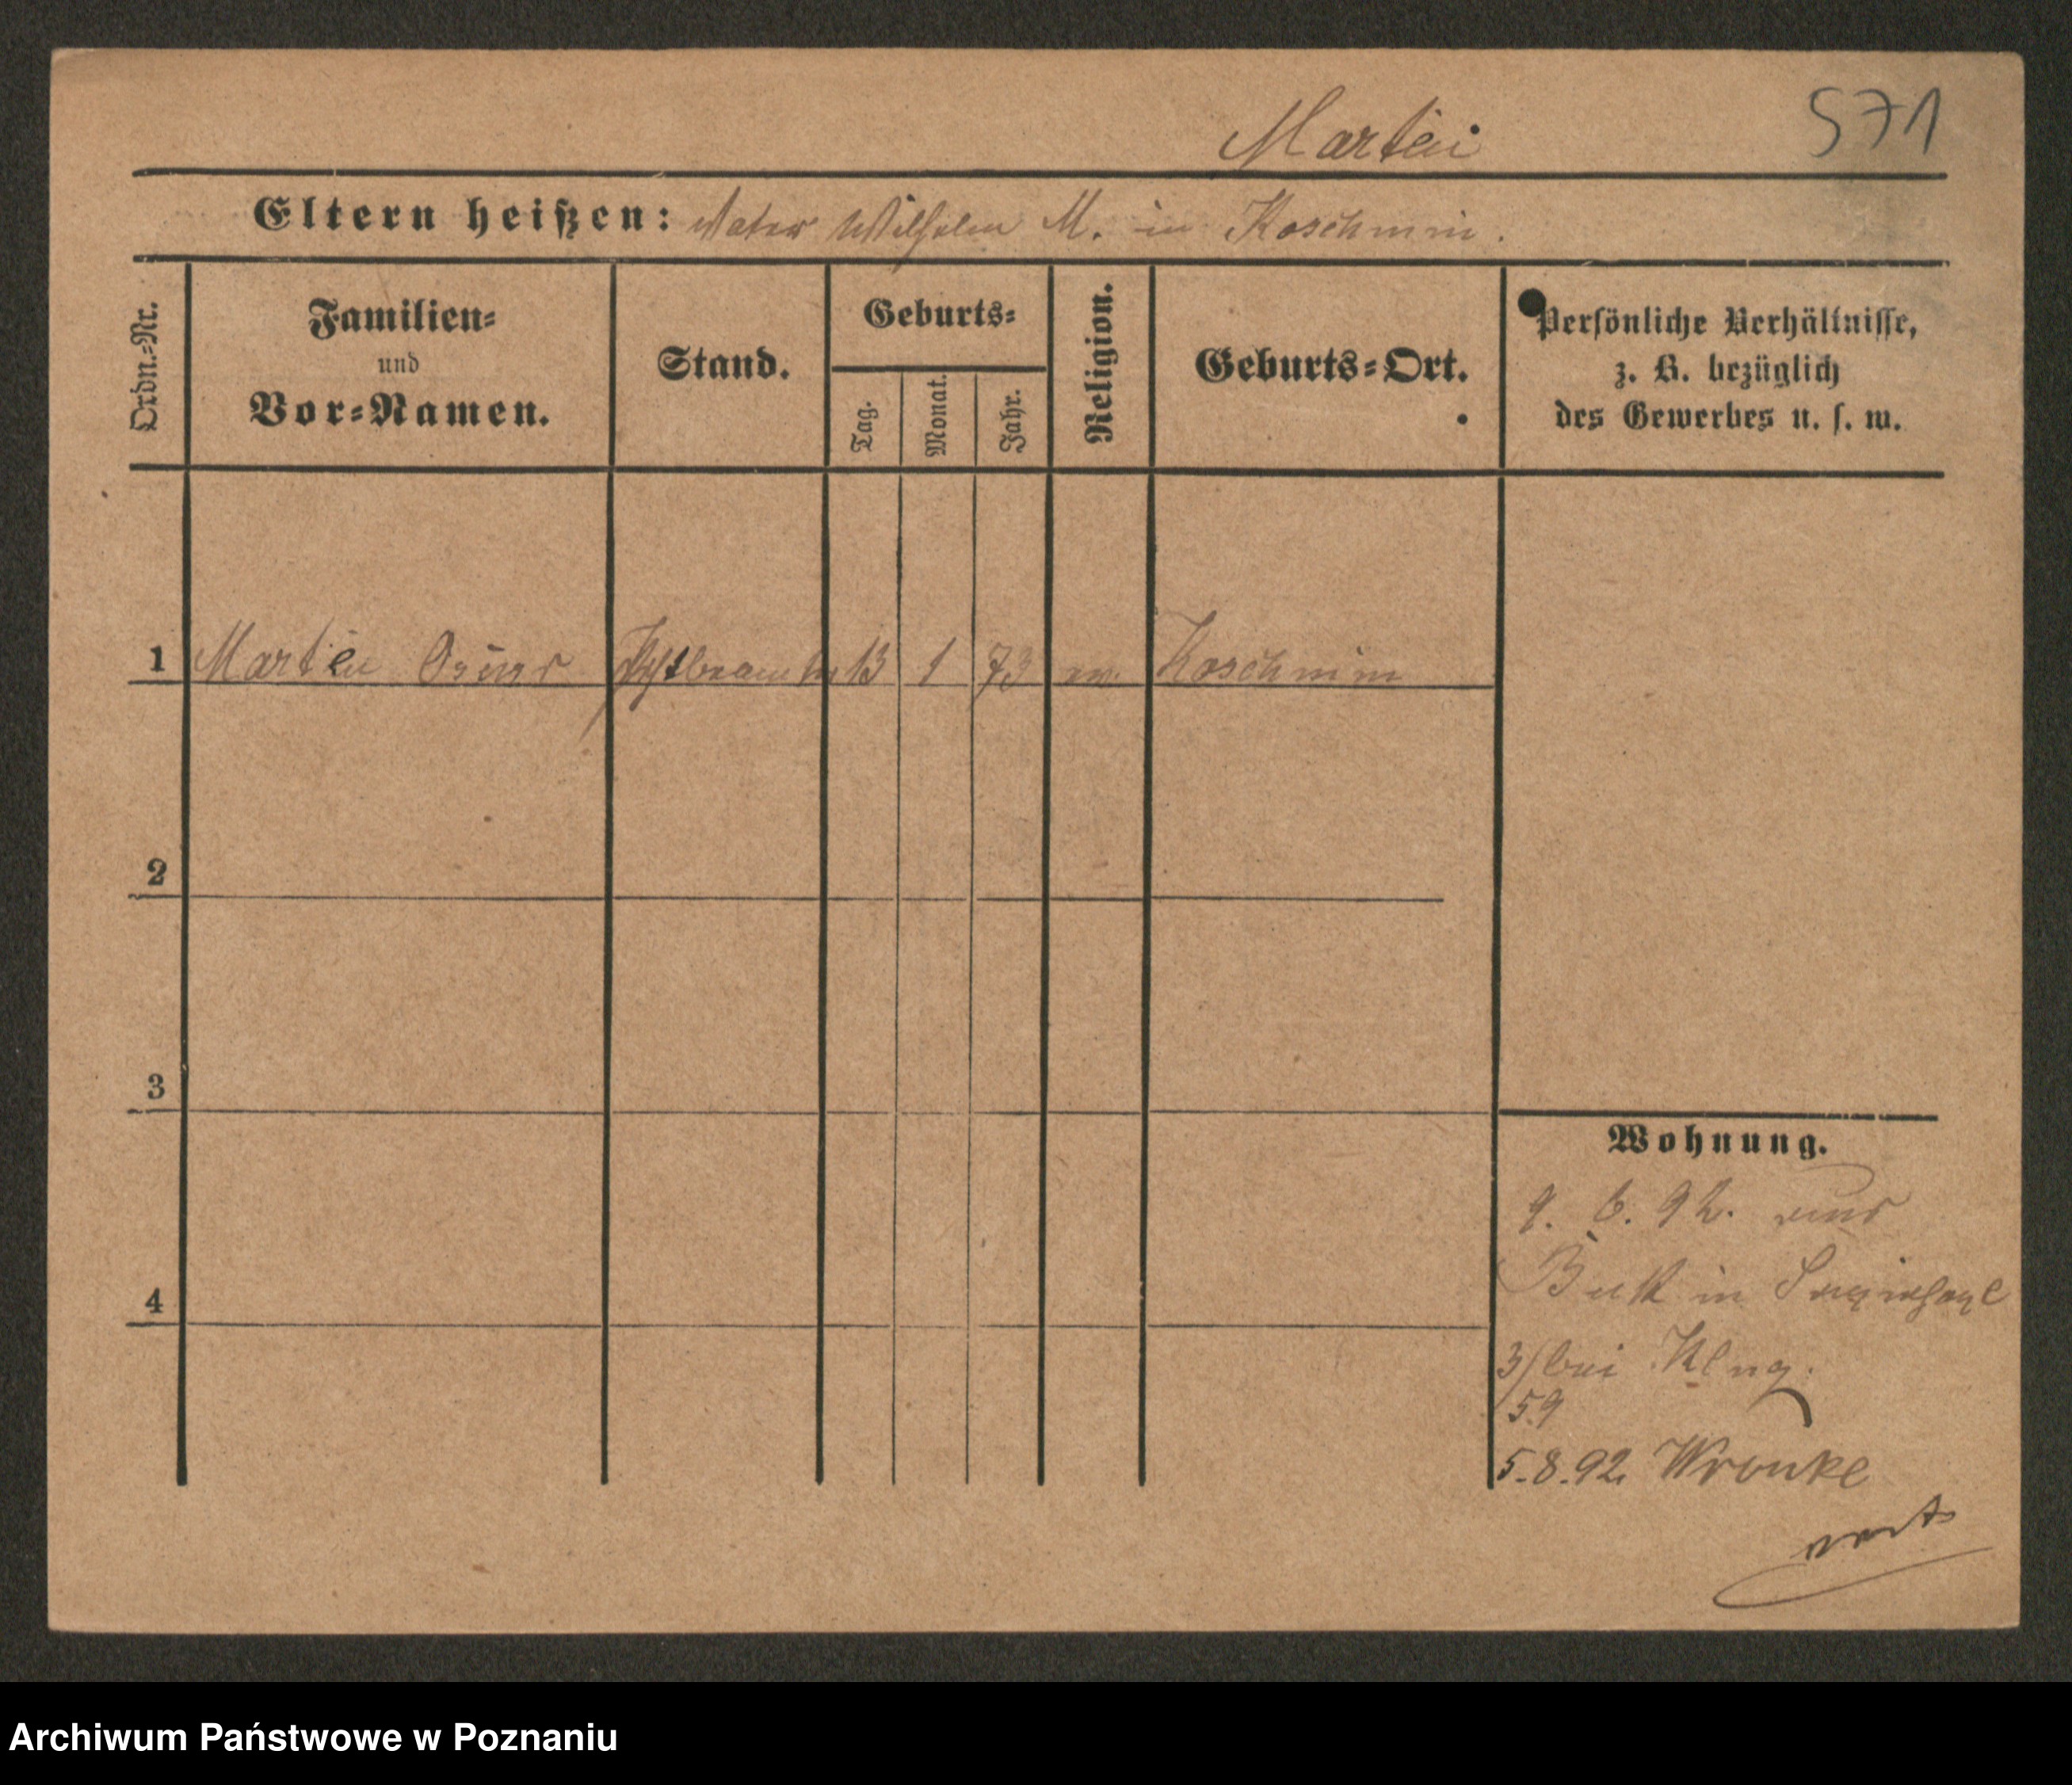 571
Martin
Eltern heißen: Vater Wilhelm M. in Koschmin.
Ordn.-Nr.
Familien-
und
Vor-Namen.
Stand.
Geburts-
Tag.
Monat.
Jahr.
Religion.
Geburts-Ort.
Persönliche Verhältnisse,
z. B. bezüglich
des Gewerbes u. s. w.
1 Martin 13 1 73 ev. Koschmin
2
3
4
Wohnung.
9. 6. 92. aus
Buk in
3/ bei
59
5.8.92. Wronke
Archiwum Państwowe w Poznaniu